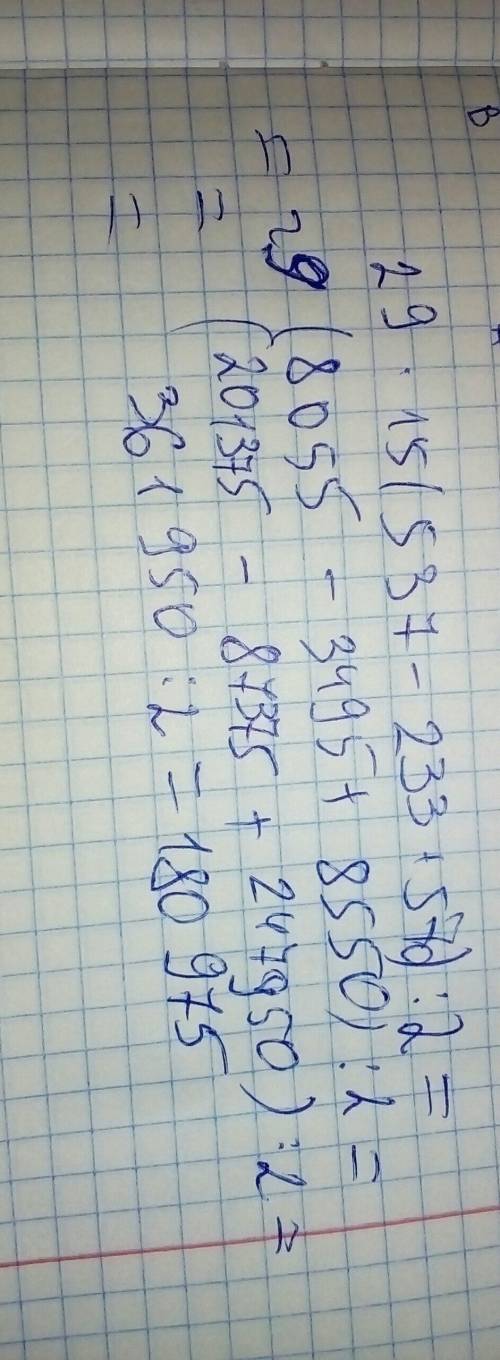 29 · 15(537 - 233 + 570) : 2 =
= 29 (8055 - 3495 + 8550) : 2 =
= (201375 - 87375 + 247950) : 2 =
= 361950 : 2 = 180 975